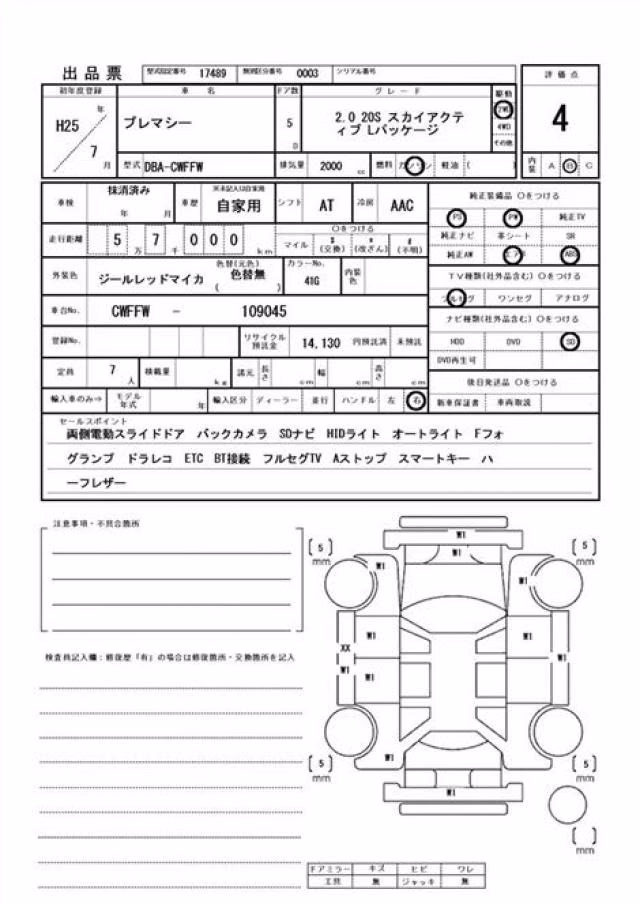 出品票 型式指定番号 17489 類別区分番号 0003 シリアル番号
評価点
初年度登録 車名 ドア数 グレード 駆動
H25 年 プレマシー 5 D 2.0 20S スカイアクテ 2WD
ィブ Lパッケージ 4WD
7 月 その他
4
型式 DBA-CWFFW 排気量 2000 cc 燃料 ガソリン 軽油 ( ) 内装 A B C
車検 抹消済み 年 月 車歴 ※未記入は自家用 自家用 シフト AT 冷房 AAC
純正装備品 〇をつける
PS PW 純正TV
走行距離 5 万 7 千 0 0 0 km 〇をつける
マイル $ (交換) * (改ざん) # (不明)
純正ナビ 革シート SR
純正AW エアB ABS
外装色 ジールレッドマイカ 色替(元色) 色替無 ( ) カラーNo. 41G 内装色
TV種類(社外品含む) 〇をつける
フルセグ ワンセグ アナログ
車台No. CWFFW - 109045
ナビ種類(社外品含む) 〇をつける
登録No. リサイクル預託金 14,130 円預託済 未預託
HDD DVD SD
DVD再生可
定員 7 人 積載量 kg 諸元 長さ cm 幅 cm 高さ cm
後日発送品 〇をつける
輸入車のみ⇒ モデル年式 年 輸入区分 ディーラー 並行 ハンドル 左 右
新車保証書 車両取説
セールスポイント
両側電動スライドドア バックカメラ SDナビ HIDライト オートライト Fフォ
グランプ ドラレコ ETC BT接続 フルセグTV Aストップ スマートキー ハ
ーフレザー
注意事項・不具合箇所
W1
5 mm W1 W1 W1 5 mm
W1 W1
検査員記入欄:修復歴「有」の場合は修復箇所・交換箇所を記入
XX
W1 W1 W1 W1
W1
5 mm 5 mm
W1
mm
ドアミラー キズ ヒビ ワレ
工具 無 ジャッキ 無